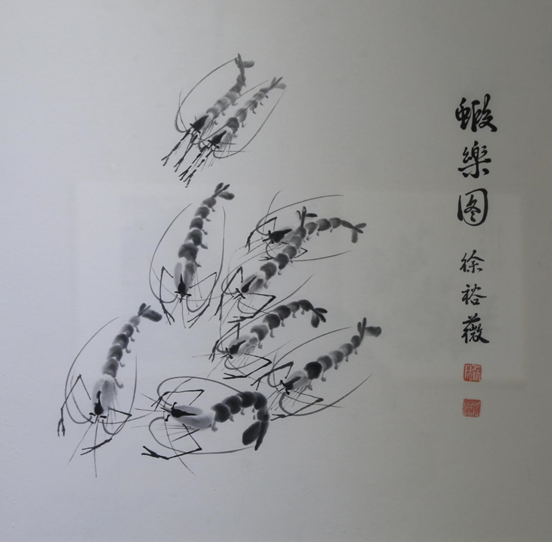 蝦樂图
徐裕薇